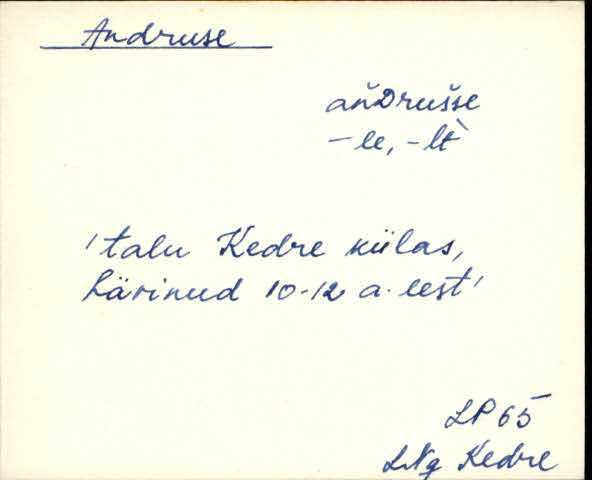 Andruse
añDrušše
– le, – lt̀
'talu Kedre külas,
härinud 10-12 a. eest'
LP 65
LNg Kedre